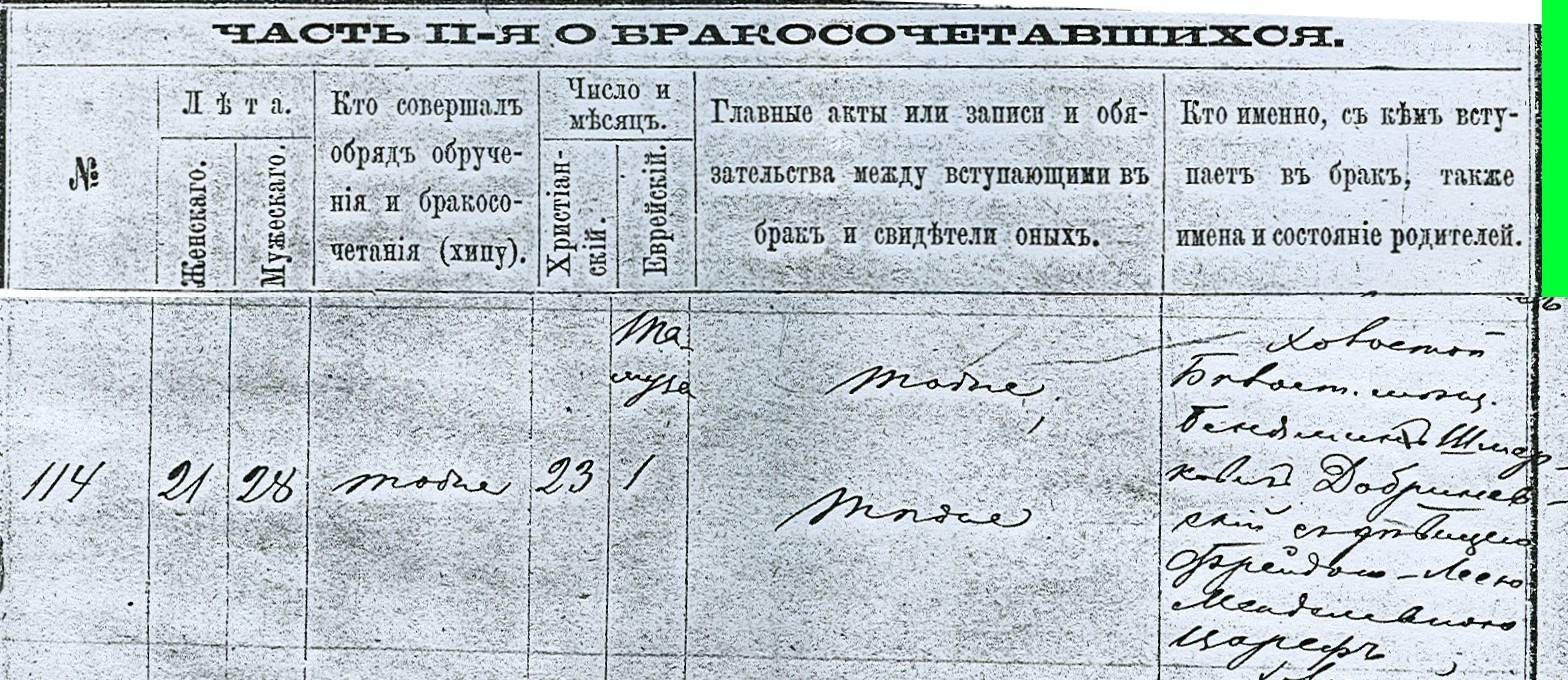 ЧАСТЬ II-Я О БРАКОСОЧЕТАВШИХСЯ.
№
Лѣта.
Женскаго.
Мужескаго.
Кто совершалъ
обрядъ обруче-
нія и бракосо-
четанія (хипу).
Число и
мѣсяцъ.
Христіан-
скій.
Еврейскій.
Главные акты или записи и обя-
зательства между вступающими въ
бракъ и свидѣтели оныхъ.
Кто именно, съ кѣмъ всту-
паетъ въ бракъ, также
имена и состояніе родителей.
114
21
28
тоже
23
Та-
муза
1
тоже,
Тоже
Холостой
Бѣлост. мѣщ.
Беньяминъ
Добринев-
скій съ дѣвицею
Фрейдою-Леею
Царефъ